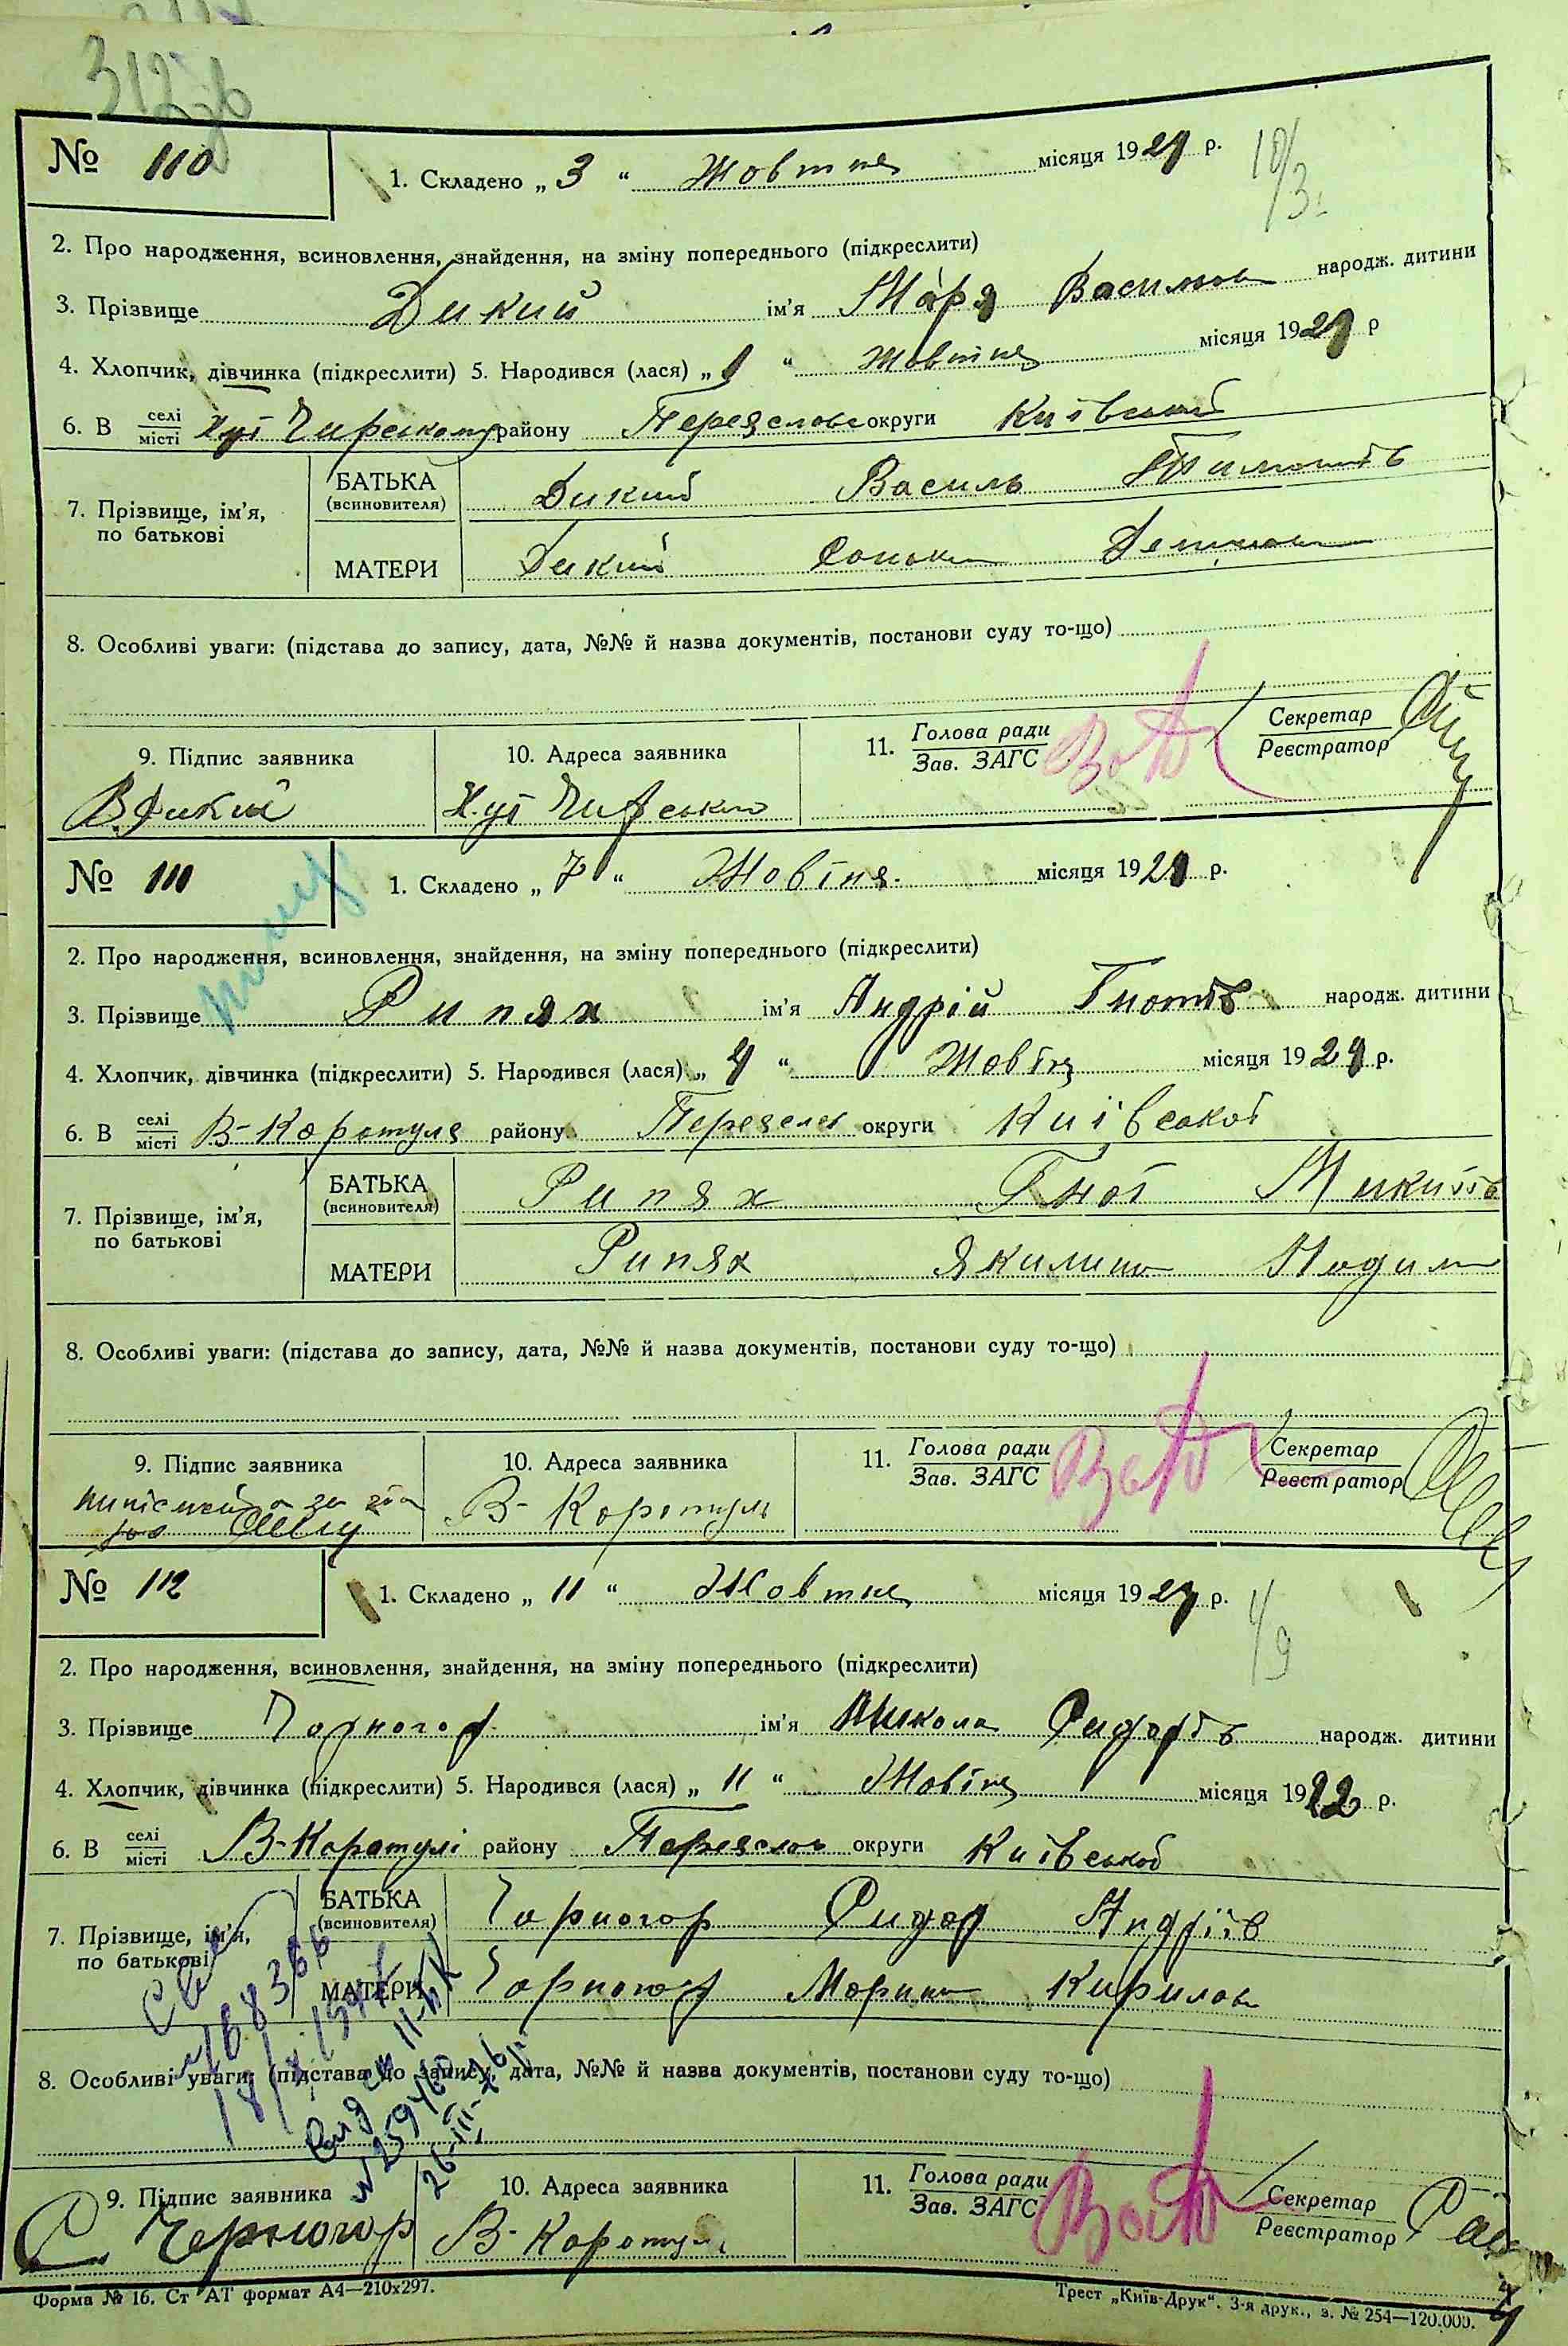 312зв
№ 110
1. Складено „ 3 “ Жовтня місяця 1929 р.
10/3
2. Про народження, всиновлення, знайдення, на зміну попереднього (підкреслити)
3. Прізвище Дикий ім'я Марія Василів народж. дитини
4. Хлопчик, дівчинка (підкреслити) 5. Народився (лася) „ 1 “ Жовтня місяця 1929 р
6. В селі/місті Хут району Переяслов округи Київської
7. Прізвище, ім'я, по батькові
БАТЬКА (всиновителя) Дикий Василь
МАТЕРИ Дикий
8. Особливі уваги: (підстава до запису, дата, №№ й назва документів, постанови суду то-що)
9. Підпис заявника 10. Адреса заявника 11. Голова ради/Зав. ЗАГС Секретар/Реєстратор
В Дикий Хут
№ 111
1. Складено „ 7 “ Жовтня місяця 1929 р.
2. Про народження, всиновлення, знайдення, на зміну попереднього (підкреслити)
3. Прізвище Рипях ім'я Андрій Гнатів народж. дитини
4. Хлопчик, дівчинка (підкреслити) 5. Народився (лася) „ 4 “ Жовтня місяця 1929 р.
6. В селі/місті В-Каратуля району Переяслов округи Київської
7. Прізвище, ім'я, по батькові
БАТЬКА (всиновителя) Рипях Гнат Микитів
МАТЕРИ Рипях Якилина
8. Особливі уваги: (підстава до запису, дата, №№ й назва документів, постанови суду то-що)
9. Підпис заявника 10. Адреса заявника 11. Голова ради/Зав. ЗАГС Секретар/Реєстратор
В-Каратуль
№ 112
1. Складено „ 11 “ Жовтня місяця 1929 р.
2. Про народження, всиновлення, знайдення, на зміну попереднього (підкреслити)
3. Прізвище Чорногор ім'я Микола Сидорів народж. дитини
4. Хлопчик, дівчинка (підкреслити) 5. Народився (лася) „ 11 “ Жовтня місяця 1922 р.
6. В селі/місті В-Каратулі району Переяслов округи Київської
7. Прізвище, ім'я, по батькові
БАТЬКА (всиновителя) Чорногор Сидор Андріїв
МАТЕРИ Чорногор Марина Кирилов
8. Особливі уваги: (підстава до запису, дата, №№ й назва документів, постанови суду то-що)
9. Підпис заявника 10. Адреса заявника 11. Голова ради/Зав. ЗАГС Секретар/Реєстратор
С. Черногор В-Каратуль
Форма № 16. Ст АТ формат А4—210х297.
Трест „Київ-Друк“. 3-я друк., з. № 254—120.000.